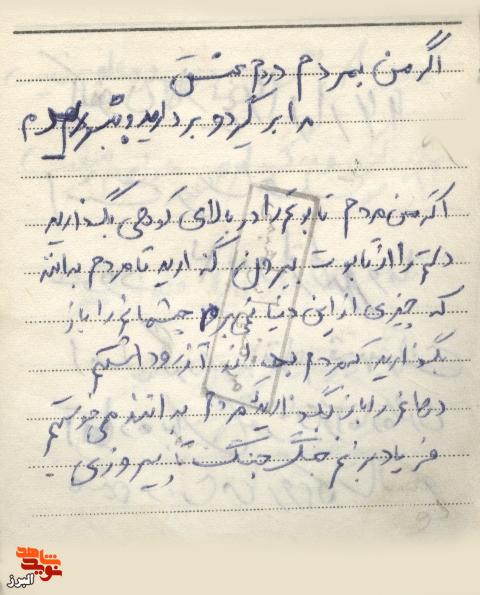 اگر من بمردم در ره عشق
مرا بر گیرد و بردارید و
اگر من مردم تابوتم را در بالای کوهی بگذارید
دستم را از تابوت بیرون گذارید تا مردم بدانند
که چیزی از این دنیا نمی‌برم چشمانم را باز
بگذارید که مردم بدانند آرزو داشتم
دهانم را باز بگذارید مردم بدانند می‌خواستم
فریاد بزنم جنگ جنگ تا پیروزی
نوید شاهد
البرز